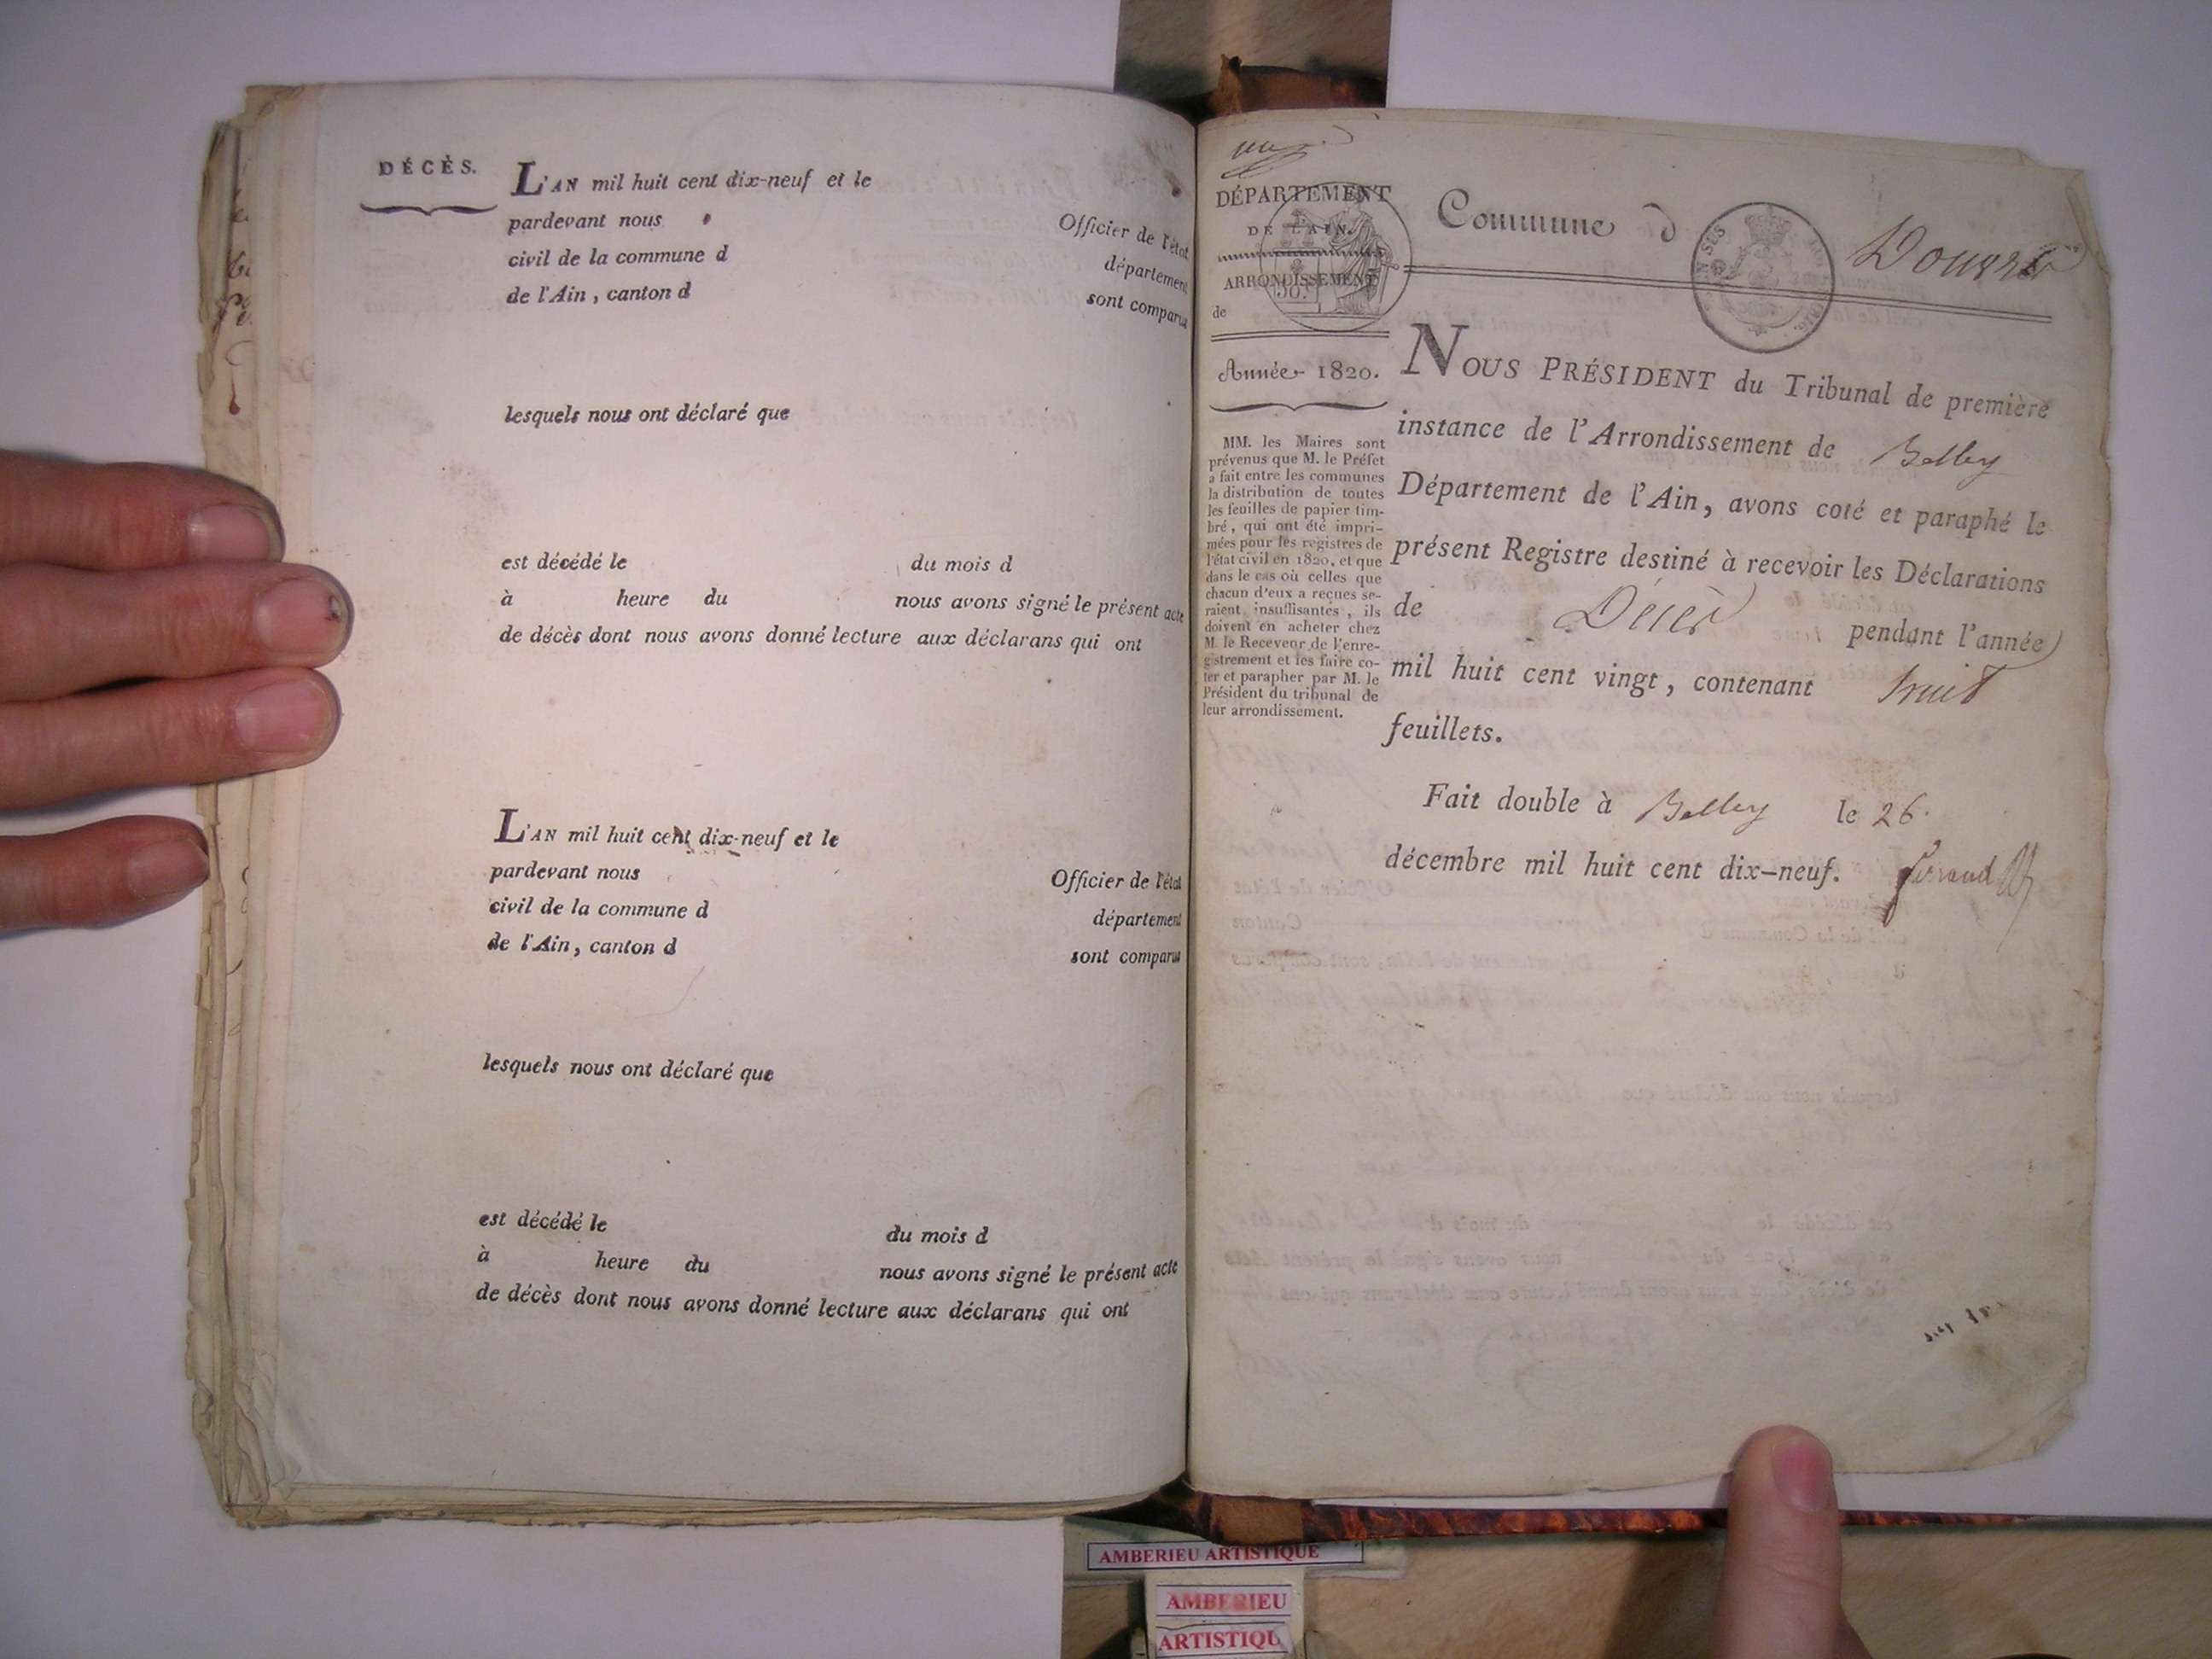 DÉCÈS.
L'AN mil huit cent dix-neuf et le
pardevant nous Officier de l'état
civil de la commune d département
de l'Ain, canton d sont comparus
lesquels nous ont déclaré que
est décédé le du mois d
à heure du nous avons signé le présent acte
de décès dont nous avons donné lecture aux déclarans qui ont
L'AN mil huit cent dix-neuf et le
pardevant nous Officier de l'état
civil de la commune d département
de l'Ain, canton d sont comparus
lesquels nous ont déclaré que
est décédé le du mois d
à heure du nous avons signé le présent acte
de décès dont nous avons donné lecture aux déclarans qui ont
DÉPARTEMENT
DE L'AIN.
ARRONDISSEMENT
de
Année 1820.
MM. les Maires sont
prévenus que M. le Préfet
a fait entre les communes
la distribution de toutes
les feuilles de papier tim-
bré, qui ont été impri-
mées pour les registres de
l'état civil en 1820, et que
dans le cas où celles que
chacun d'eux a reçues se-
raient insuffisantes, ils
doivent en acheter chez
M. le Receveur de l'enre-
gistrement et les faire co-
ter et parapher par M. le
Président du tribunal de
leur arrondissement.
Commune d Douvre
NOUS PRÉSIDENT du Tribunal de première
instance de l'Arrondissement de Belley
Département de l'Ain, avons coté et paraphé le
présent Registre destiné à recevoir les Déclarations
de Décès pendant l'année
mil huit cent vingt, contenant huit
feuillets.
Fait double à Belley le 26.
décembre mil huit cent dix-neuf.
AMBERIEU ARTISTIQUE
AMBERIEU
ARTISTIQU